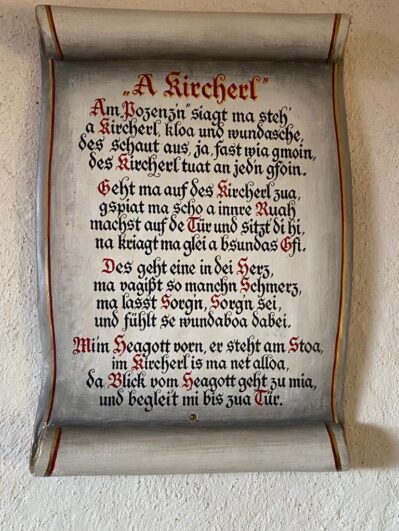 „A Kircherl"
Am „Pozenz'n" siagt ma steh'
a Kircherl, kloa und wundasche,
des schaut aus, ja, fast wia gmoin,
des Kircherl tuat an jed'n gfoin.
Geht ma auf des Kircherl zua,
gspiat ma scho a innre Ruah
machst auf de Tür und sitzt di hi,
na kriagt ma glei a bsundas Gfi.
Des geht eine in dei Herz,
ma vagißt so manchn Schmerz,
ma lasst Sorg'n, Sorg'n sei,
und fühlt se wundaboa dabei.
Mi'm Heagott vorn, er steht am Stoa,
im Kircherl is ma net alloa,
da Blick vom Heagott geht zu mia,
und begleit mi bis zua Tür.